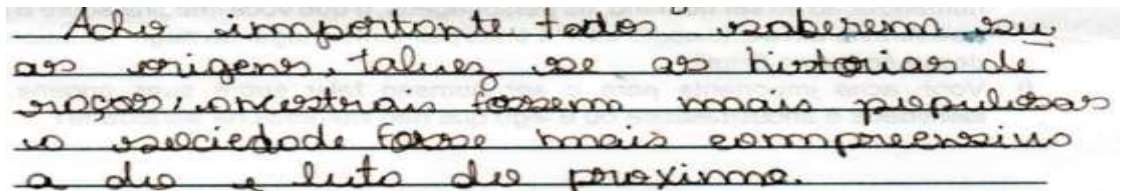 Acho importante todos saberem su
as origens, talvez se as historias de
raças, ancestrais fossem mais populosas
a sociedade fosse mais compreensiva
a dio e luto do proximo.